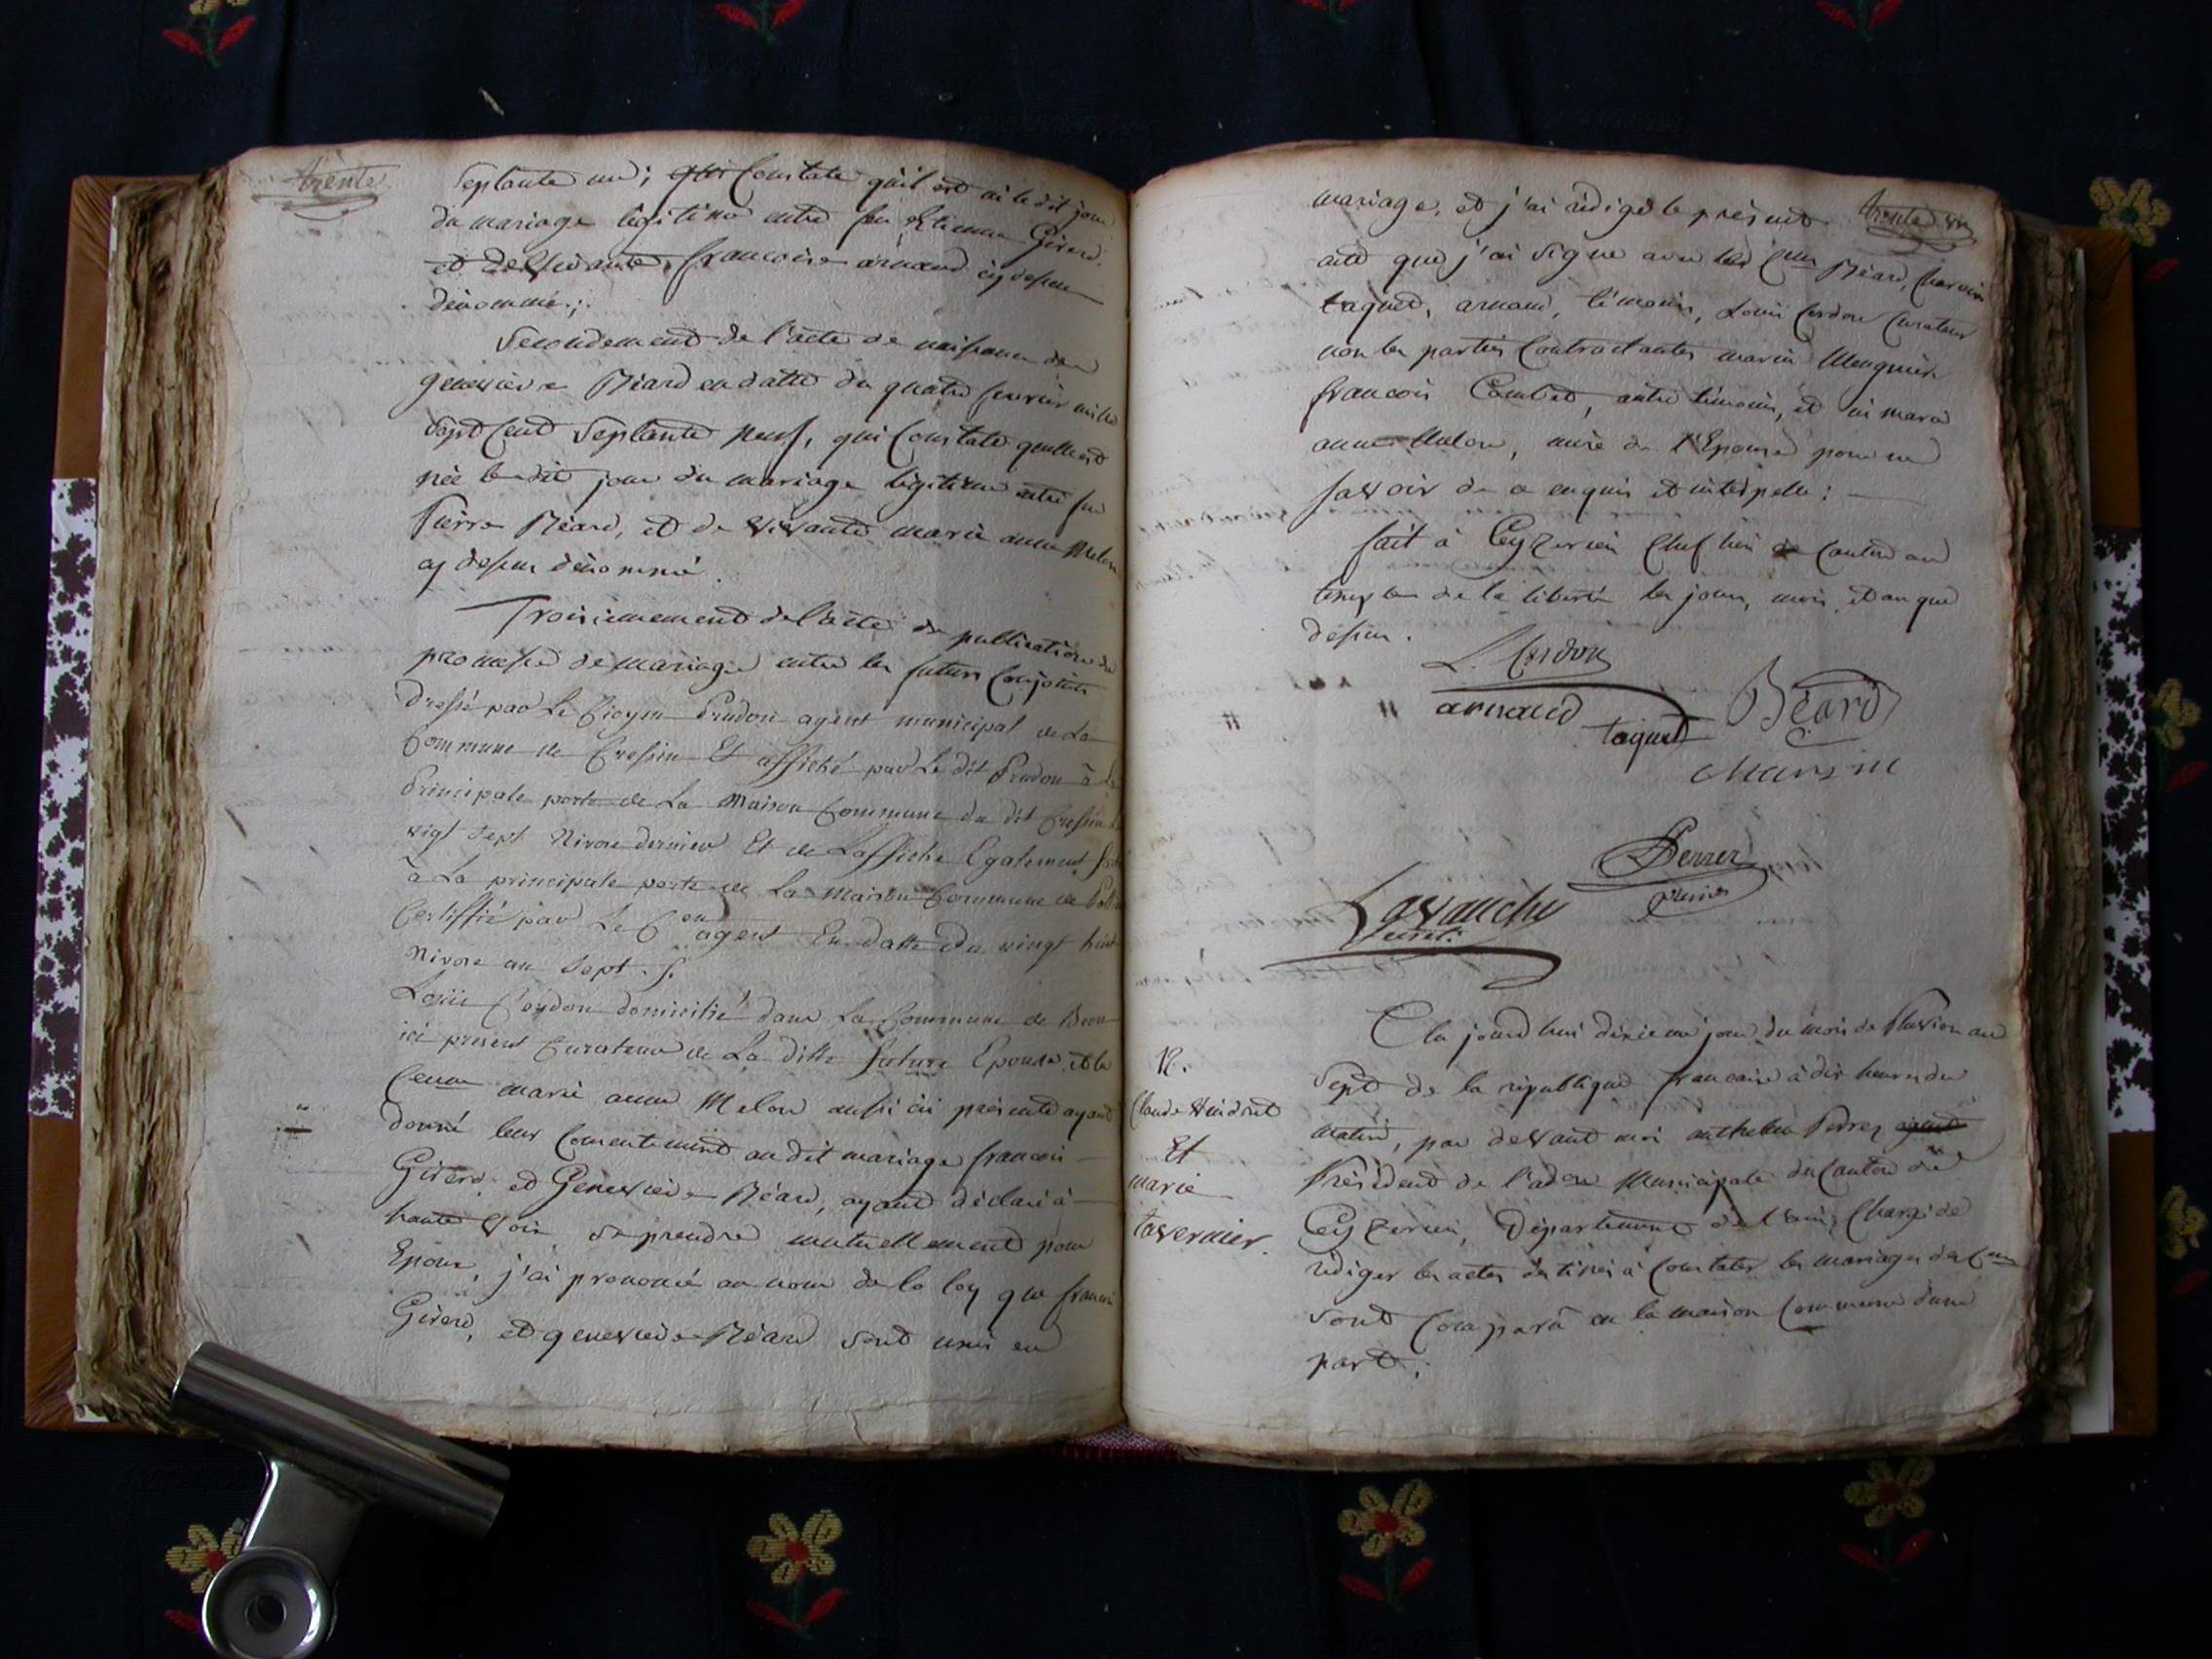 trente
Septante un ; qui Constate qu'il est né le dit jour
du mariage legitime entre feu Etienne Girerd
et de vivante, francoise arnaud cy dessus
dénommée ;.
Secondement de l'acte de naissance de
genevieve Béard en datte du quatre fevrier mille
Sept Cent Septante Neuf, qui Constate quelle est
née le dit jour du mariage légitime entre feu
Pierre Béard, et de vivante marie anne Melon
cy dessus dénommé.
Troisiemement de l'acte de publication de
promesse de mariage entre les futurs Conjoints
Dressé par Le Citoyen Prudon agent municipal de La
Commune de Cressin Et affiché par Le dit Prudon à la
Principale porte de La Maison Commune du dit Cressin le
vigt Sept Nivose dernier Et de Laffiche Egalement
à La principale porte de La Maison Commune de
Certiffié par Le Cen agent En datte du vingt huit
Nivose an Sept.
Louis Cerdon domicilié dans La Commune de
ici present Curateur de La ditte future Epouse, et la
Cenne marie anne Melon aussi ici présente ayant
donné leur Consentement au dit mariage francois
Girerd, et Genevieve Béard, ayant déclaré à
haute voix se prendre mutuellement pour
Epoux, j'ai prononcé au nom de la loy que francois
Girerd, et genevieve Béard sont unis en
trente un
mariage, et j'ai rédigé le présent
acte que j'ai signé avec les Cens Béard,
taquet, arnaud, témoins, Louis Cerdon Curateur
non les parties Contractantes
francois Combet, autre témoin, et ni marie
anne Melon, mère de l'Epouse pour ne
savoir de ce enquis et interpellé :
fait à Ceyzerieu Chef lieu de Canton au
temple de la liberté les jour, mois, et an que
dessus.
L. Cerdon
arnaud
taquet
Béard
Perrer
Lavanchy
Secret.
12.
Claude Hindret
Et
marie
tavernier.
Cejourd'hui dixieme jour du mois de Pluviose an
Sept de la république francaise à dix heures du
matin, par devant moi anthelme Perrer agent
Président de l'adon Municipale du Canton de
Ceyzerieu, Département de l'ain, Chargé de
rédiger les actes destinés à Constater les mariages des Cens
sont Comparu en la maison Commune dune
part ;